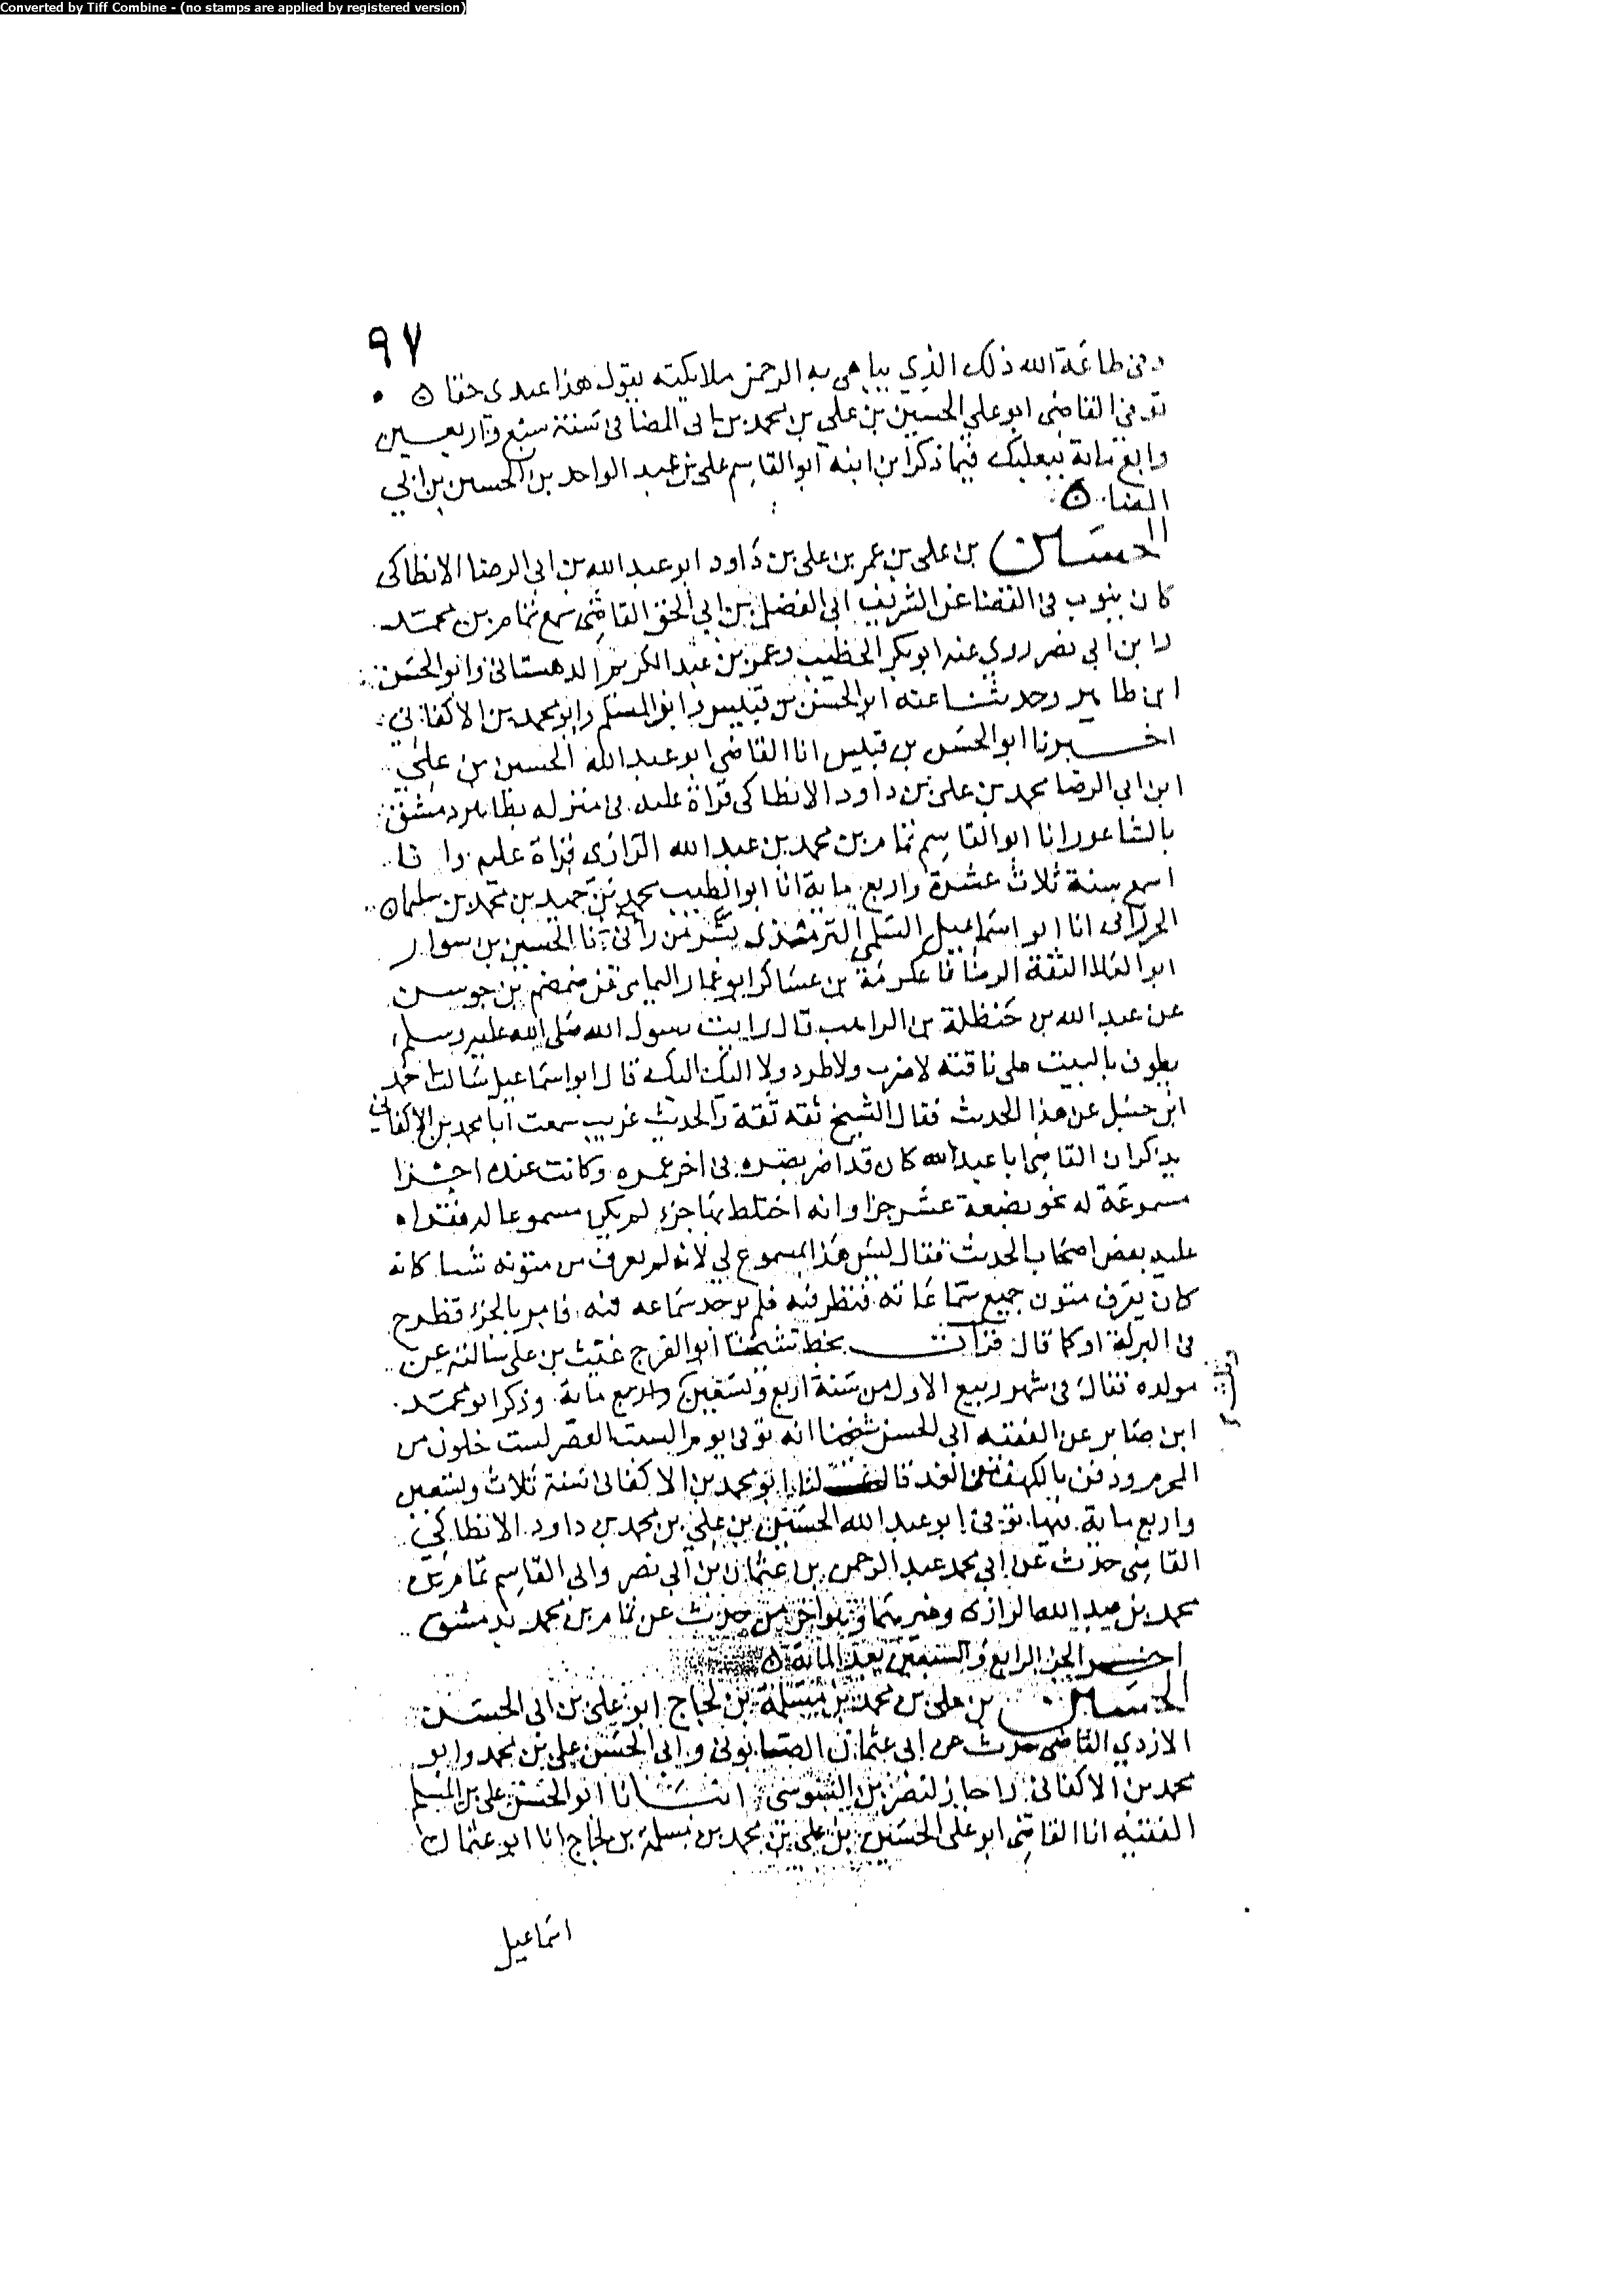 Converted by Tiff Combine - (no stamps are applied by registered version)
٩٧
وفى طاعة الله ذلك الذي يباهى به الرحمن ملايكته يقول هذا عبدى حقا ه
توفى القاضى ابو على الحسين بن على بن محمد بن ابى المضا فى سنة سبع واربعين
واربع ماية ببعلبك فيما ذكر ابن ابنه ابو القاسم على بن عبد الواحد بن الحسين بن ابي
المضا ه
الحسين بن على بن عمر بن على بن داود ابو عبد الله بن ابى الرضا الانطاكى
كان ينوب فى القضا عن الشريف ابى الفضل بن ابي الجن القاضى سمع تمام بن محمد
وابن ابي نصر روى عنه ابو بكر الخطيب وعمر بن عبد الكريم الدهستانى وابو الحسن
ابن طاهر وحدثنا عنه ابو الحسن بن قبيس وابو المسلم وابو محمد بن الاكفاني
اخبرنا ابو الحسن بن قبيس انا القاضى ابو عبد الله الحسين بن علي
ابن ابي الرضا محمد بن على بن داود الانطاكى قراة عليه فى منزله بظاهر دمشق
بالشاغور انا ابو القاسم تمام بن محمد بن عبد الله الرازى قراة عليه وانا
اسمع سنة ثلاث عشرة واربع ماية انا ابو الطيب محمد بن حميد بن محمد بن سليمان
الحورانى انا ابو اسماعيل السلمى الترمذى بسر من رأى انا الحسين بن سوار
ابو العلا الثقة الرضا نا عكرمة بن عمار ابو عمار اليمامى عن ضمضم بن جوس
عن عبد الله بن حنظلة بن الراهب قال رايت رسول الله صلى الله عليه وسلم
يطوف بالبيت على ناقته لا ضرب ولا طرد ولا اليك اليك قال ابو اسماعيل سالت احمد
ابن حنبل عن هذا الحديث فقال الشيخ ثقه ثقة والحديث غريب سمعت ابا محمد بن الاكفاني
يذكر ان القاضى ابا عبد الله كان قد اضر بصره فى اخر عمره وكانت عنده اجزا
مسموعة له نحو بضعة عشر جزا وانه اختلط بها جزء لم يكن مسموعا له فقراه
عليه بعض اصحاب الحديث فقال ليس هذا بمسموع لي لانه لم يعرف من متونه شيا كانه
كان يعرف متون جميع سماعاته فنظر فيه فلم يوجد سماعه فيه فامر بالجزء فطرح
فى البركة او كما قال قرات بخط شيخنا ابو الفرج غيث بن على سالته عن
مولده فقال فى شهر ربيع الاول من سنة اربع وتسعين واربع ماية وذكر ابو محمد
ابن صابر عن الفقيه ابى الحسن شيخنا انه توفى يوم السبت العصر لست خلون من
المحرم ودفن بالكهف من الغد قال لنا ابو محمد بن الاكفانى سنة ثلاث وستين
واربع ماية فيها توفى ابو عبد الله الحسين بن علي بن محمد بن داود الانطاكي
القاضى حدث عن ابى محمد عبد الرحمن بن عثمان بن ابى نصر وابى القاسم تمام بن
محمد بن عبد الله الرازى وغيرهما وهو اخر من حدث عن تمام بن محمد بدمشق
اخر الجز الرابع والستين بعد المائة ه
الحسين بن على بن محمد بن مسلمة بن لجاج ابو على بن ابى الحسن
الازدي القاضى حدث عن ابى عثمان الصابونى وابى الحسن على بن محمد وابو
محمد بن الاكفانى واجاز لنصر بن السوسى انشانا ابو الحسن على بن المسلم
الفقيه انا القاضى ابو على الحسين بن على بن محمد بن مسلمة بن لجاج انا ابو عثمان
اسماعيل